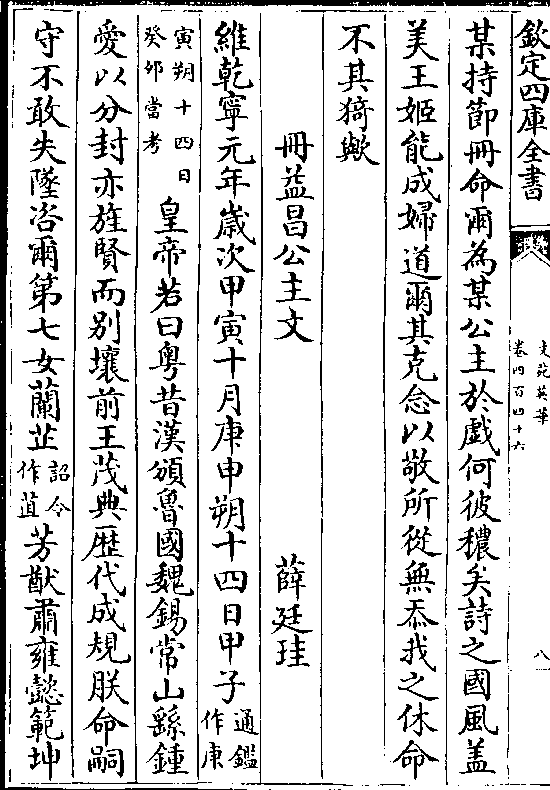 欽定四庫全書
文苑英華
卷四百四十六
八
某持節冊命爾為某公主於戲何彼穠矣詩之國風蓋
美王姬能成婦道爾其克念以敬所從無忝我之休命
不其猗歟
冊益昌公主文
薛廷珪
維乾寧元年歲次甲寅十月庚申朔十四日甲子
通鑑
作庚
寅朔十四日
癸夘當考
皇帝若曰粵昔漢頒魯國魏錫常山繇鍾
愛以分封亦旌賢而别壤前王茂典歴代成規朕命嗣
守不敢失墜咨爾第七女蘭芷
詔令
作茝
芳猷肅雍懿範坤